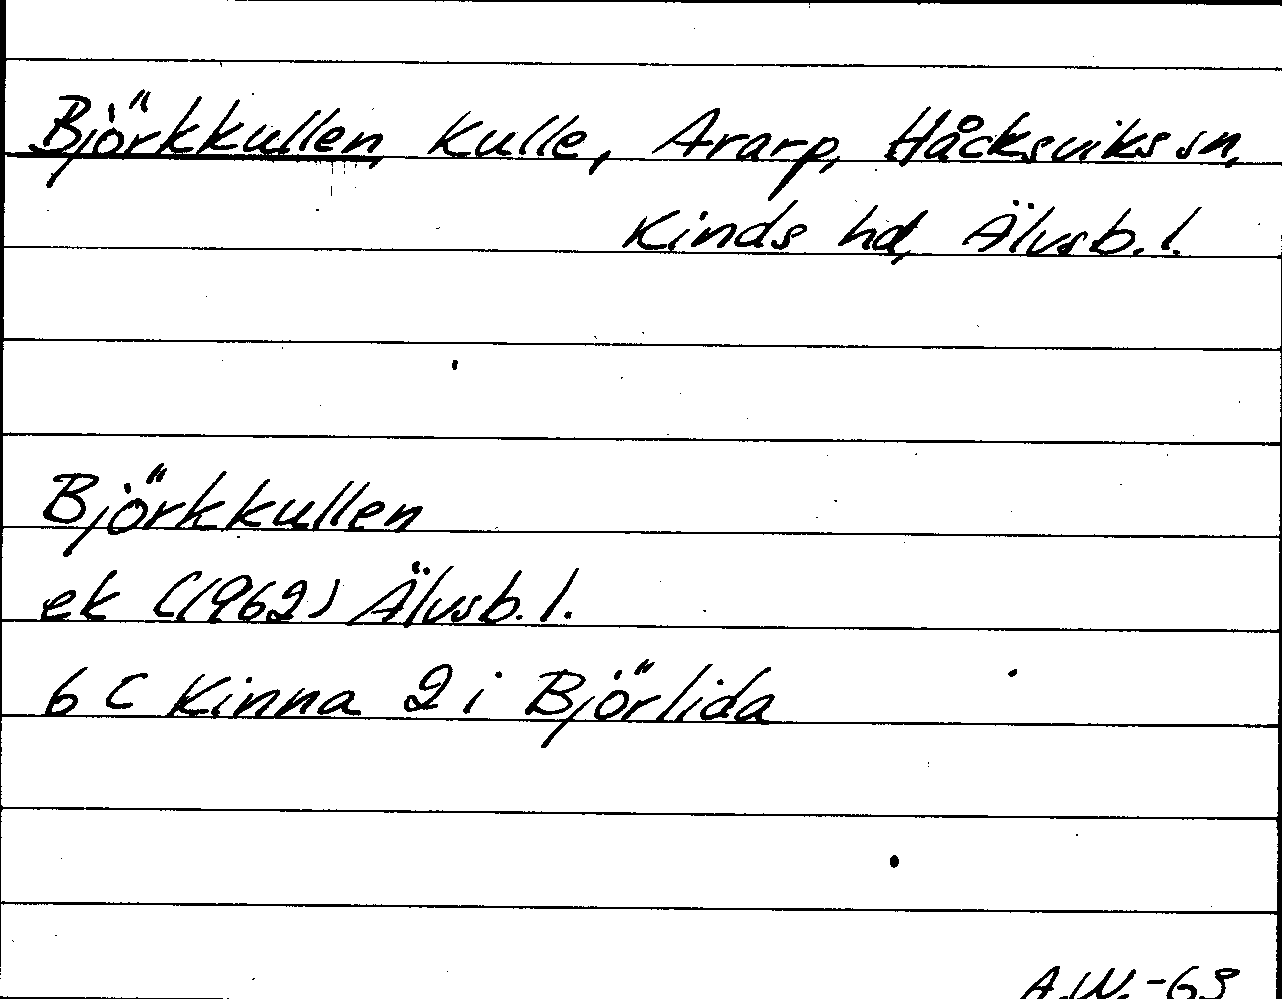 Björkkullen, Kulle, Ararp, Håcksviks sn,
Kinds hd, Älvsb. l.
Björkkullen
ek (1962) Älvsb. l.
6 C Kinna 2 i Björlida
A.W. -63